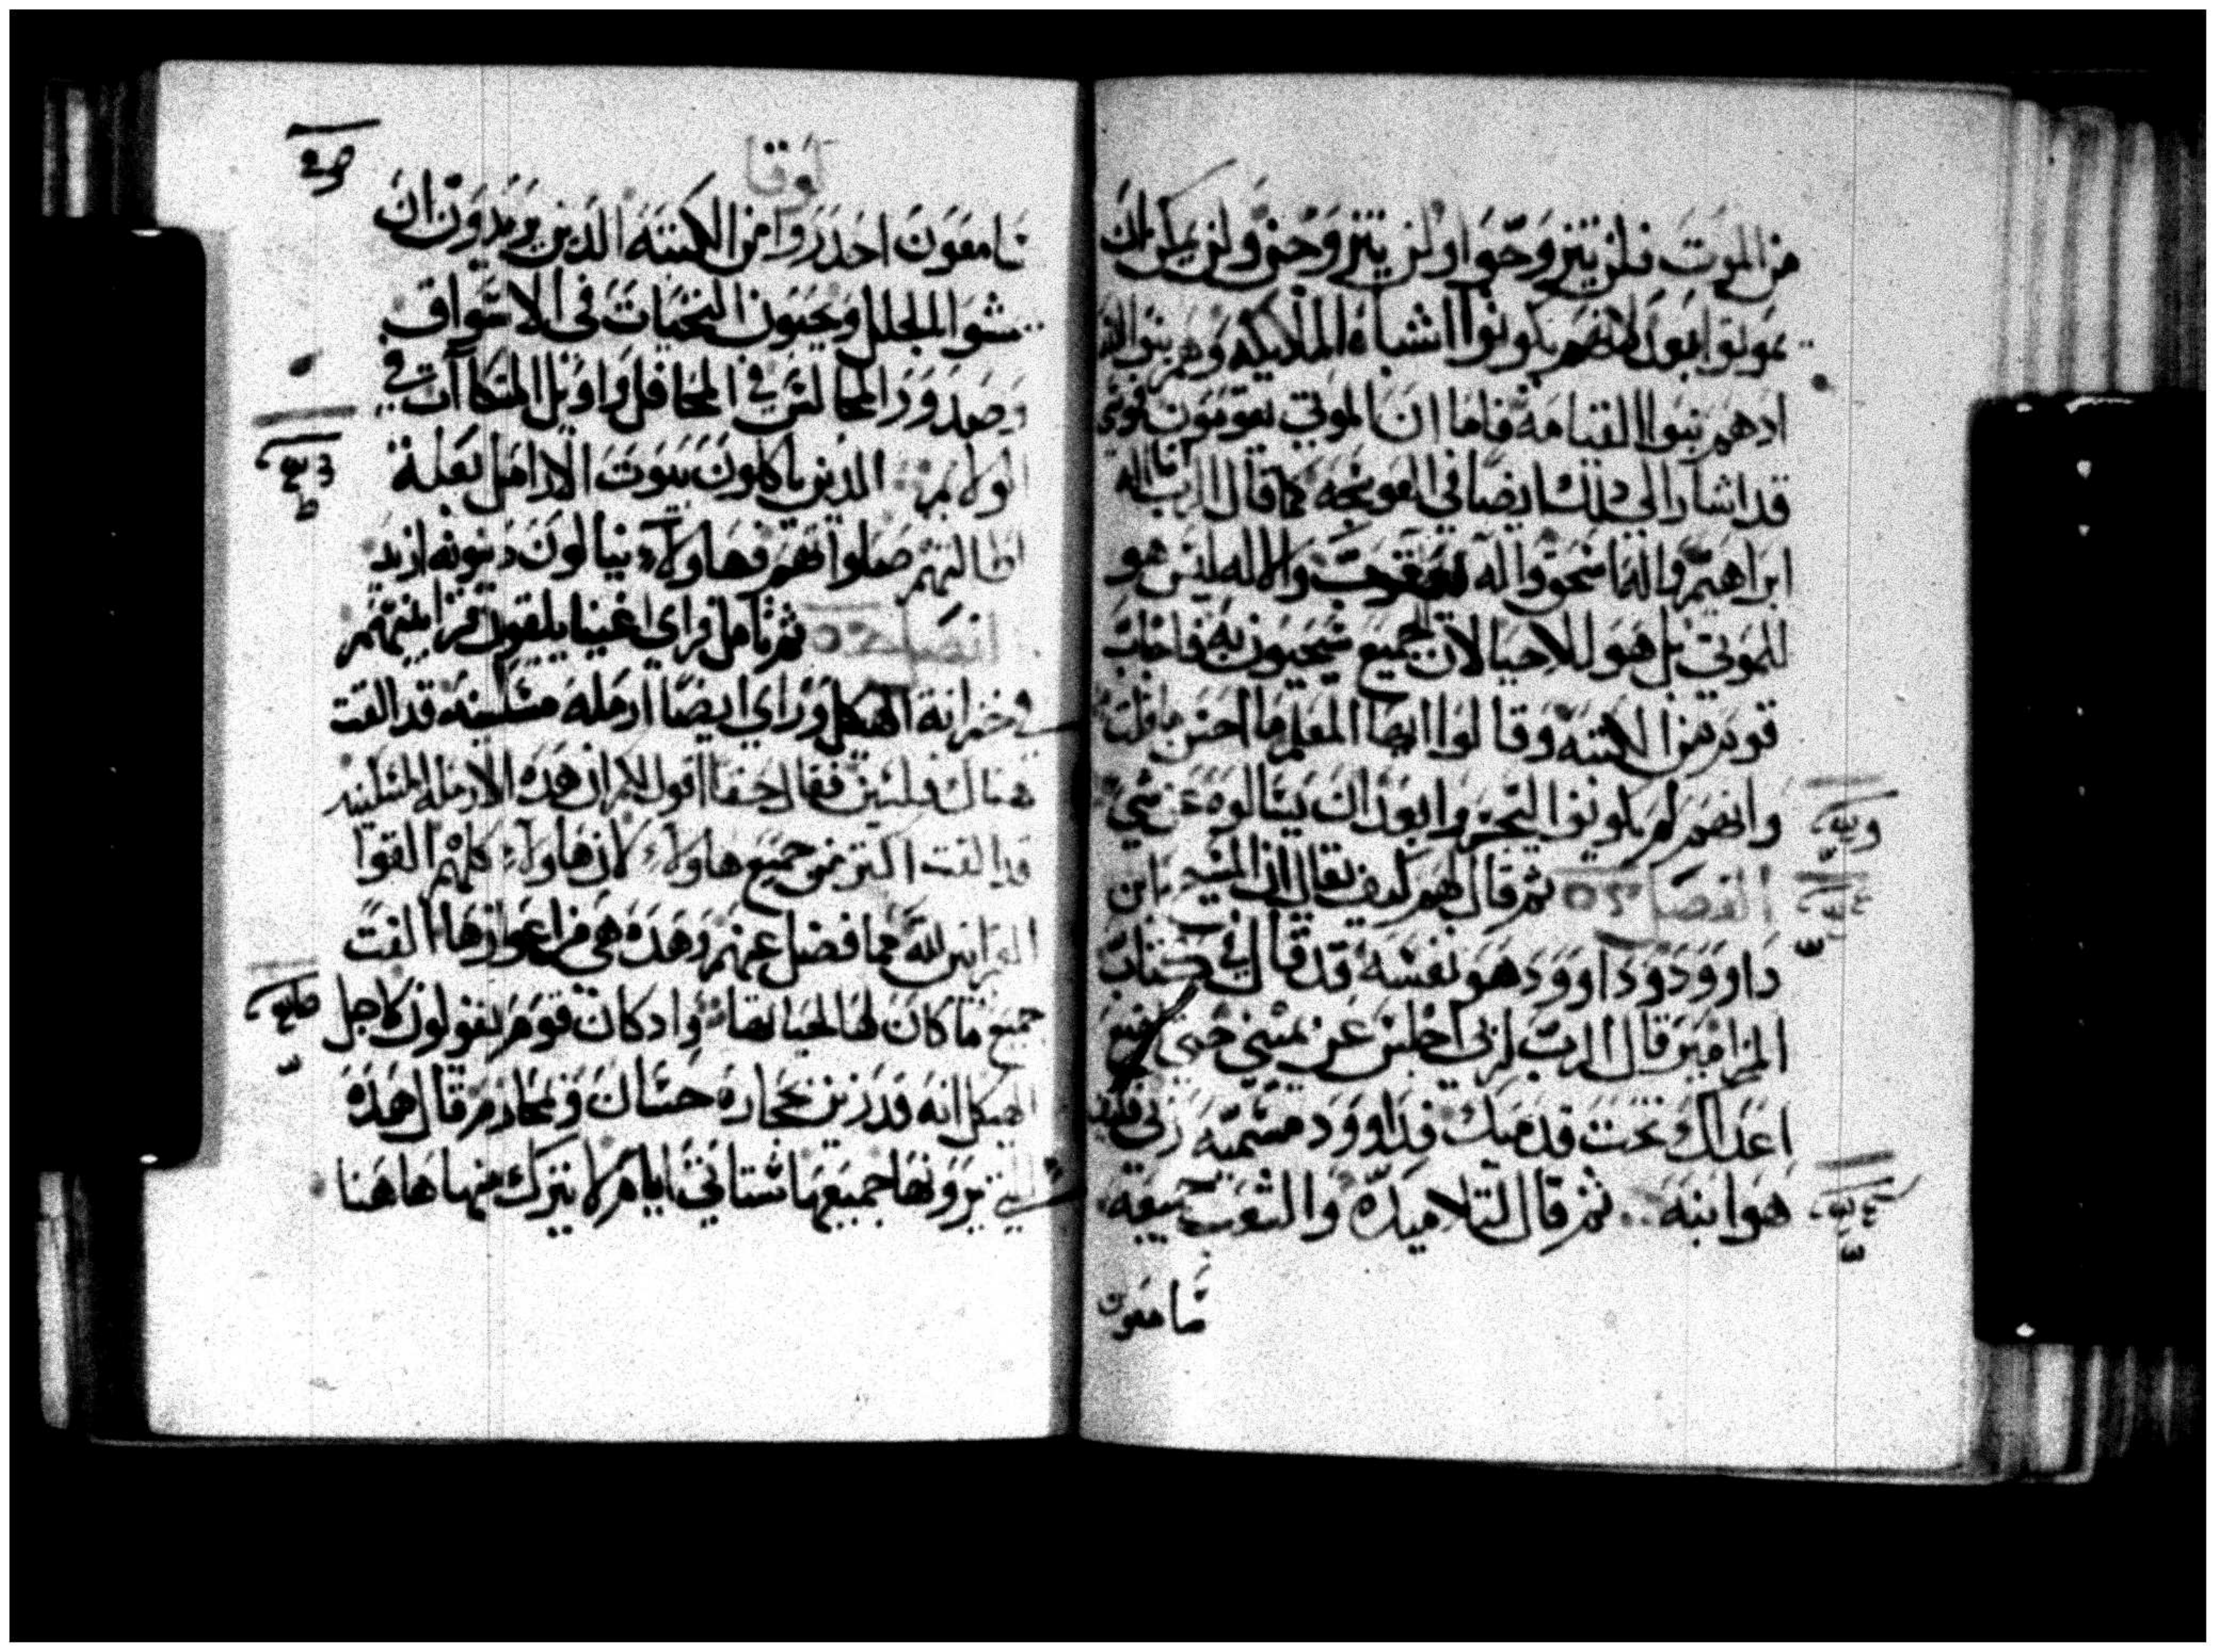 من الموت فلن يتزوجوا ولن يتزوجن ولن يمكن ان
يموتوا بعد لانهم يكونوا اشباه الملايكه وهم بنوا الله
ادهم بنوا القيامة فاما ان الموتي يقومون
قد اشار الي دلك ايضا في العوسجه كما قال الرب اله
ابراهيم واله اسحق واله يعقوب والاله ليس هو
للموتي بل هو للاحيا لان الجميع سيحيون به فاجاب
قوم من الكتبه وقالوا ايها المعلم ما احسن ما قلت
وانهم لم يكونوا ايتجروا بعد داك يسالوه عن شي
الفصل ثم قال لهم كيف يقال ان المسيح ابن
داوود وداوود هو نفسه قد قال في كتاب
المزامير قال الرب لربي اجلس عن يميني حتي اضع
اعداك تحت قدميك فداوود مسميه ربي فكيف
هو ابنه ثم قال لتلاميده والشعب جميعه
سامعون
لوقا
سامعون احدروا من الكتبة الدين يريدون ان
يمشوا بالحلل ويحبون التحيات في الاسواق
وصدور المجالس في المحافل واويل المتكاآت في
الولايم الدين ياكلون بيوت الارامل بعلة
اطالتهم صلواتهم فهاولاء ينالون دينونه ازيد
الفصل ثم تامل فراي اغنيا يلقون قرابينهم
في خزانة الهيكل وراي ايضا ارمله مسكينه قد القت
هناك فلسين فقال حقا اقول لكم ان هده الارمله المسكينه
قد القت اكتر من جميع هاولاء لان هاولاء كلهم القوا
القرابين لله مما فضل عنهم وهده هي من اعوازها القت
جميع ما كان لها لحياتها واد كان قوم يقولون لاجل
الهيكل انه قد زين بحجاره حسان وفخار قال هده
التي ترونها جميعها ستاتي ايام لا يترك منها هاهنا